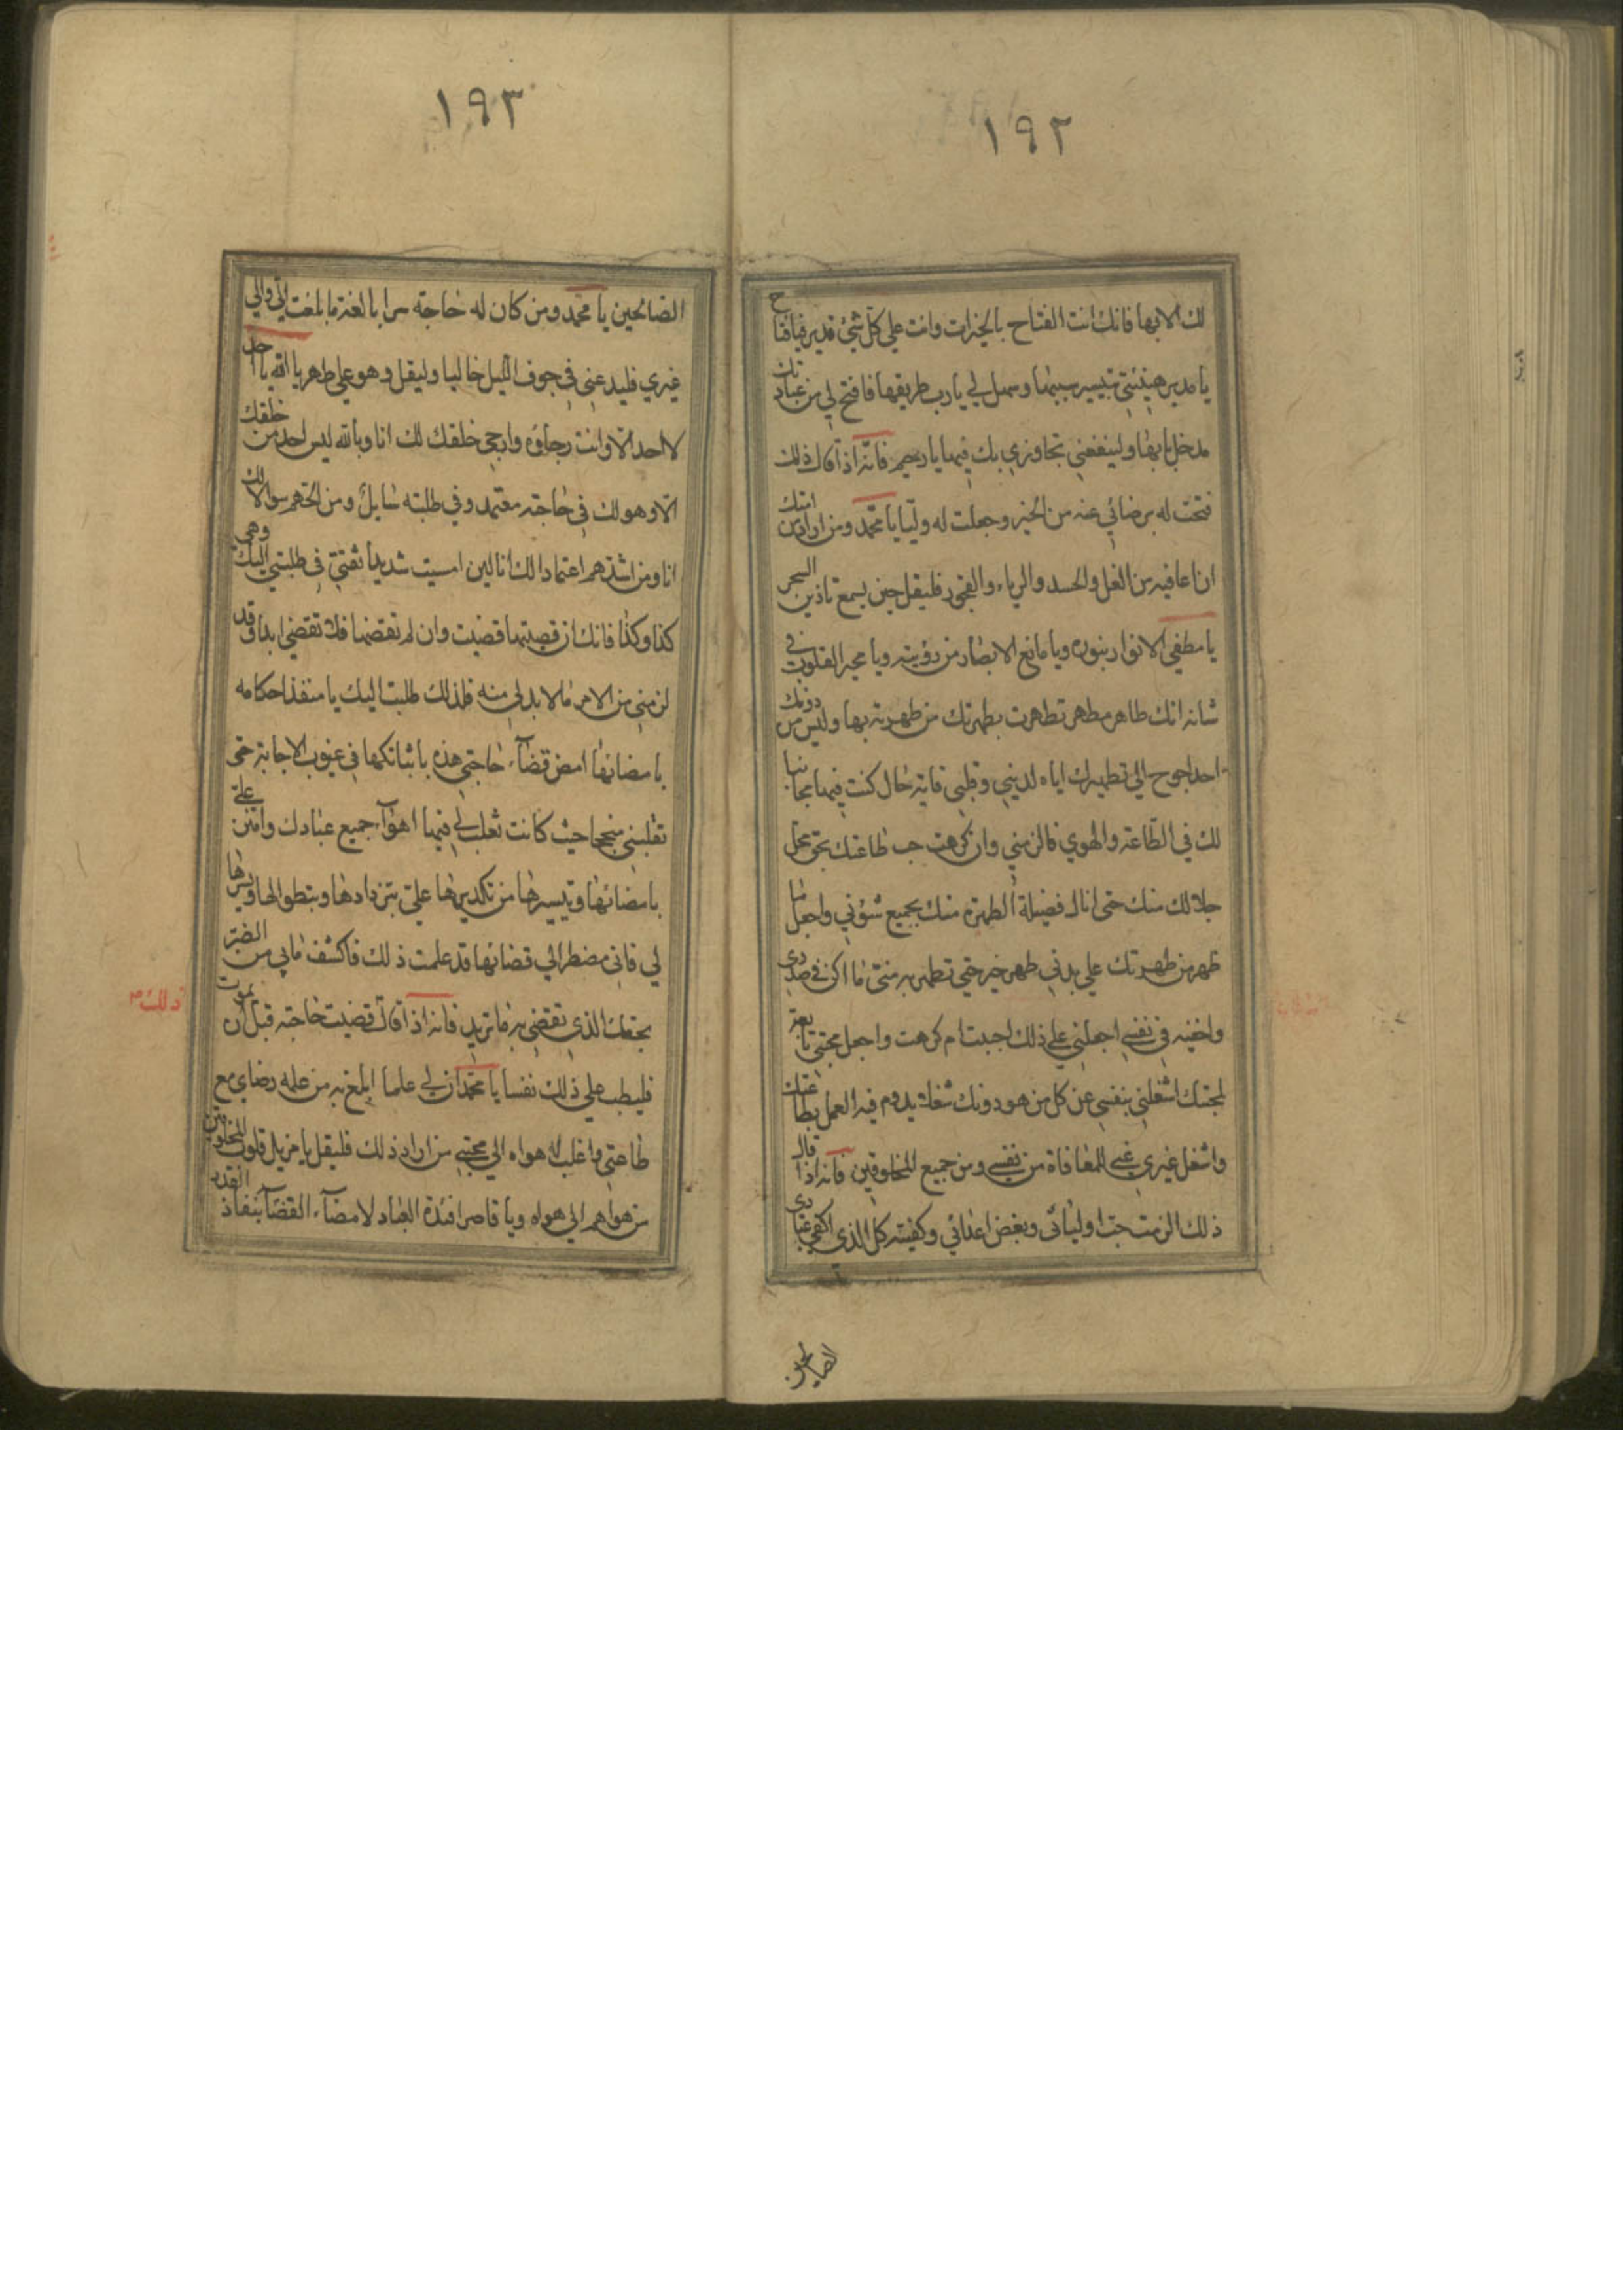 ١٩٢
لك الا بها فانك انت الفتاح بالخيرات وانت علي كل شئ قدير فيا فتاح
يا مدبر هيئني بتيسير سببها وسهل لي يا رب طريقها فافتح لي من عبادتك
مدخل بابها ولينفعني تجاوزي بك فيها يا رحيم فانه اذا قال ذلك
فتحت له برضائي عنه من الخير وجعلت له وليا يا محمد ومن اراد من امتك
ان اعافيه من الغل والحسد والرياء والفجور فليقل حين يسمع تاذين السحر
يا مطفي الانوار بنوره ويا مانع الابصار من رؤيته ويا محير القلوب في
شانه انك طاهر مطهر تطهرت بطهرتك من طهرته بها وليس من دونك
احد احوج الي تطهيرك اياه لديني وقلبي فاية حال كنت فيها مجانبا
لك في الطاعة والهوي فالزمني وان كرهت حب طاعتك بحق محل
جلالك منك حتي انال فضيلة الطهرة منك بجميع شؤني واجعل ما
ظهر من طهرتك علي بدني طهر خير حتي تطهر به مني ما اكن في صدري
واخفيه في نفسي اجعلني علي ذلك احببت ام كرهت واجعل محبتي تابعة
لمحبتك اشغلني بنفسي عن كل من هو دونك شغلا يدوم فيه العمل بطاعتك
واشغل غيري عني للمعافاة من نفسي ومن جميع المخلوقين فانه اذا قال
ذلك الزمت حب اوليائي وبغض اعدائي وكفيته كل الذي اكفي عبادي
الصالحين
١٩٣
الصالحين يا محمد ومن كان له حاجة سرا بالغة ما بلغت الي والي
غيري فليدعني في جوف الليل خاليا وليقل وهو علي طهر يا الله يا احد
لا احد الا وانت رجاؤه وارجي خلقك لك انا ويا الله ليس احد من خلقك
الا وهو لك في حاجة معتمد وفي طلبته سايل ومن الحهم سوالا لك
انا ومن اشدهم اعتمادا لك انا لين امسيت شديدا ثقتي في طلبتي اليك وهي
كذا وكذا فانك ان قضيتها قضيت وان لم تقضها فلا تقضي ابدا وقد
لزمني من الامر ما لا بد لي منه فلذلك طلبت اليك يا منفذ احكامه
بامضائها امض قضاء حاجتي هذه باثباتكها في غيوب الاجابة حتي
تقلبني منجحا حيث كانت تغلب لي فيها اهواء جميع عبادك وامنن علي
بامضائها وتيسيرها من تكديرها علي بتردادها وبتطوالها ويسرها
لي فاني مضطر الي قضائها قد علمت ذلك فاكشف ما بي من الضر
بحقك الذي تقضي به ما تريد فانه اذا قال قضيت حاجته قبل ان يموت
ذلك
فليطب علي ذلك نفسا يا محمد ان لي علما ابلغ به من علمه رضاي مع
طاعتي واغلب له هواه الي محبتي من اراد ذلك فليقل يا مزيل قلوب المخلوقين
من هواهم الي هواه ويا قاصر افئدة العباد لامضاء القضاء بنفاذ القدر